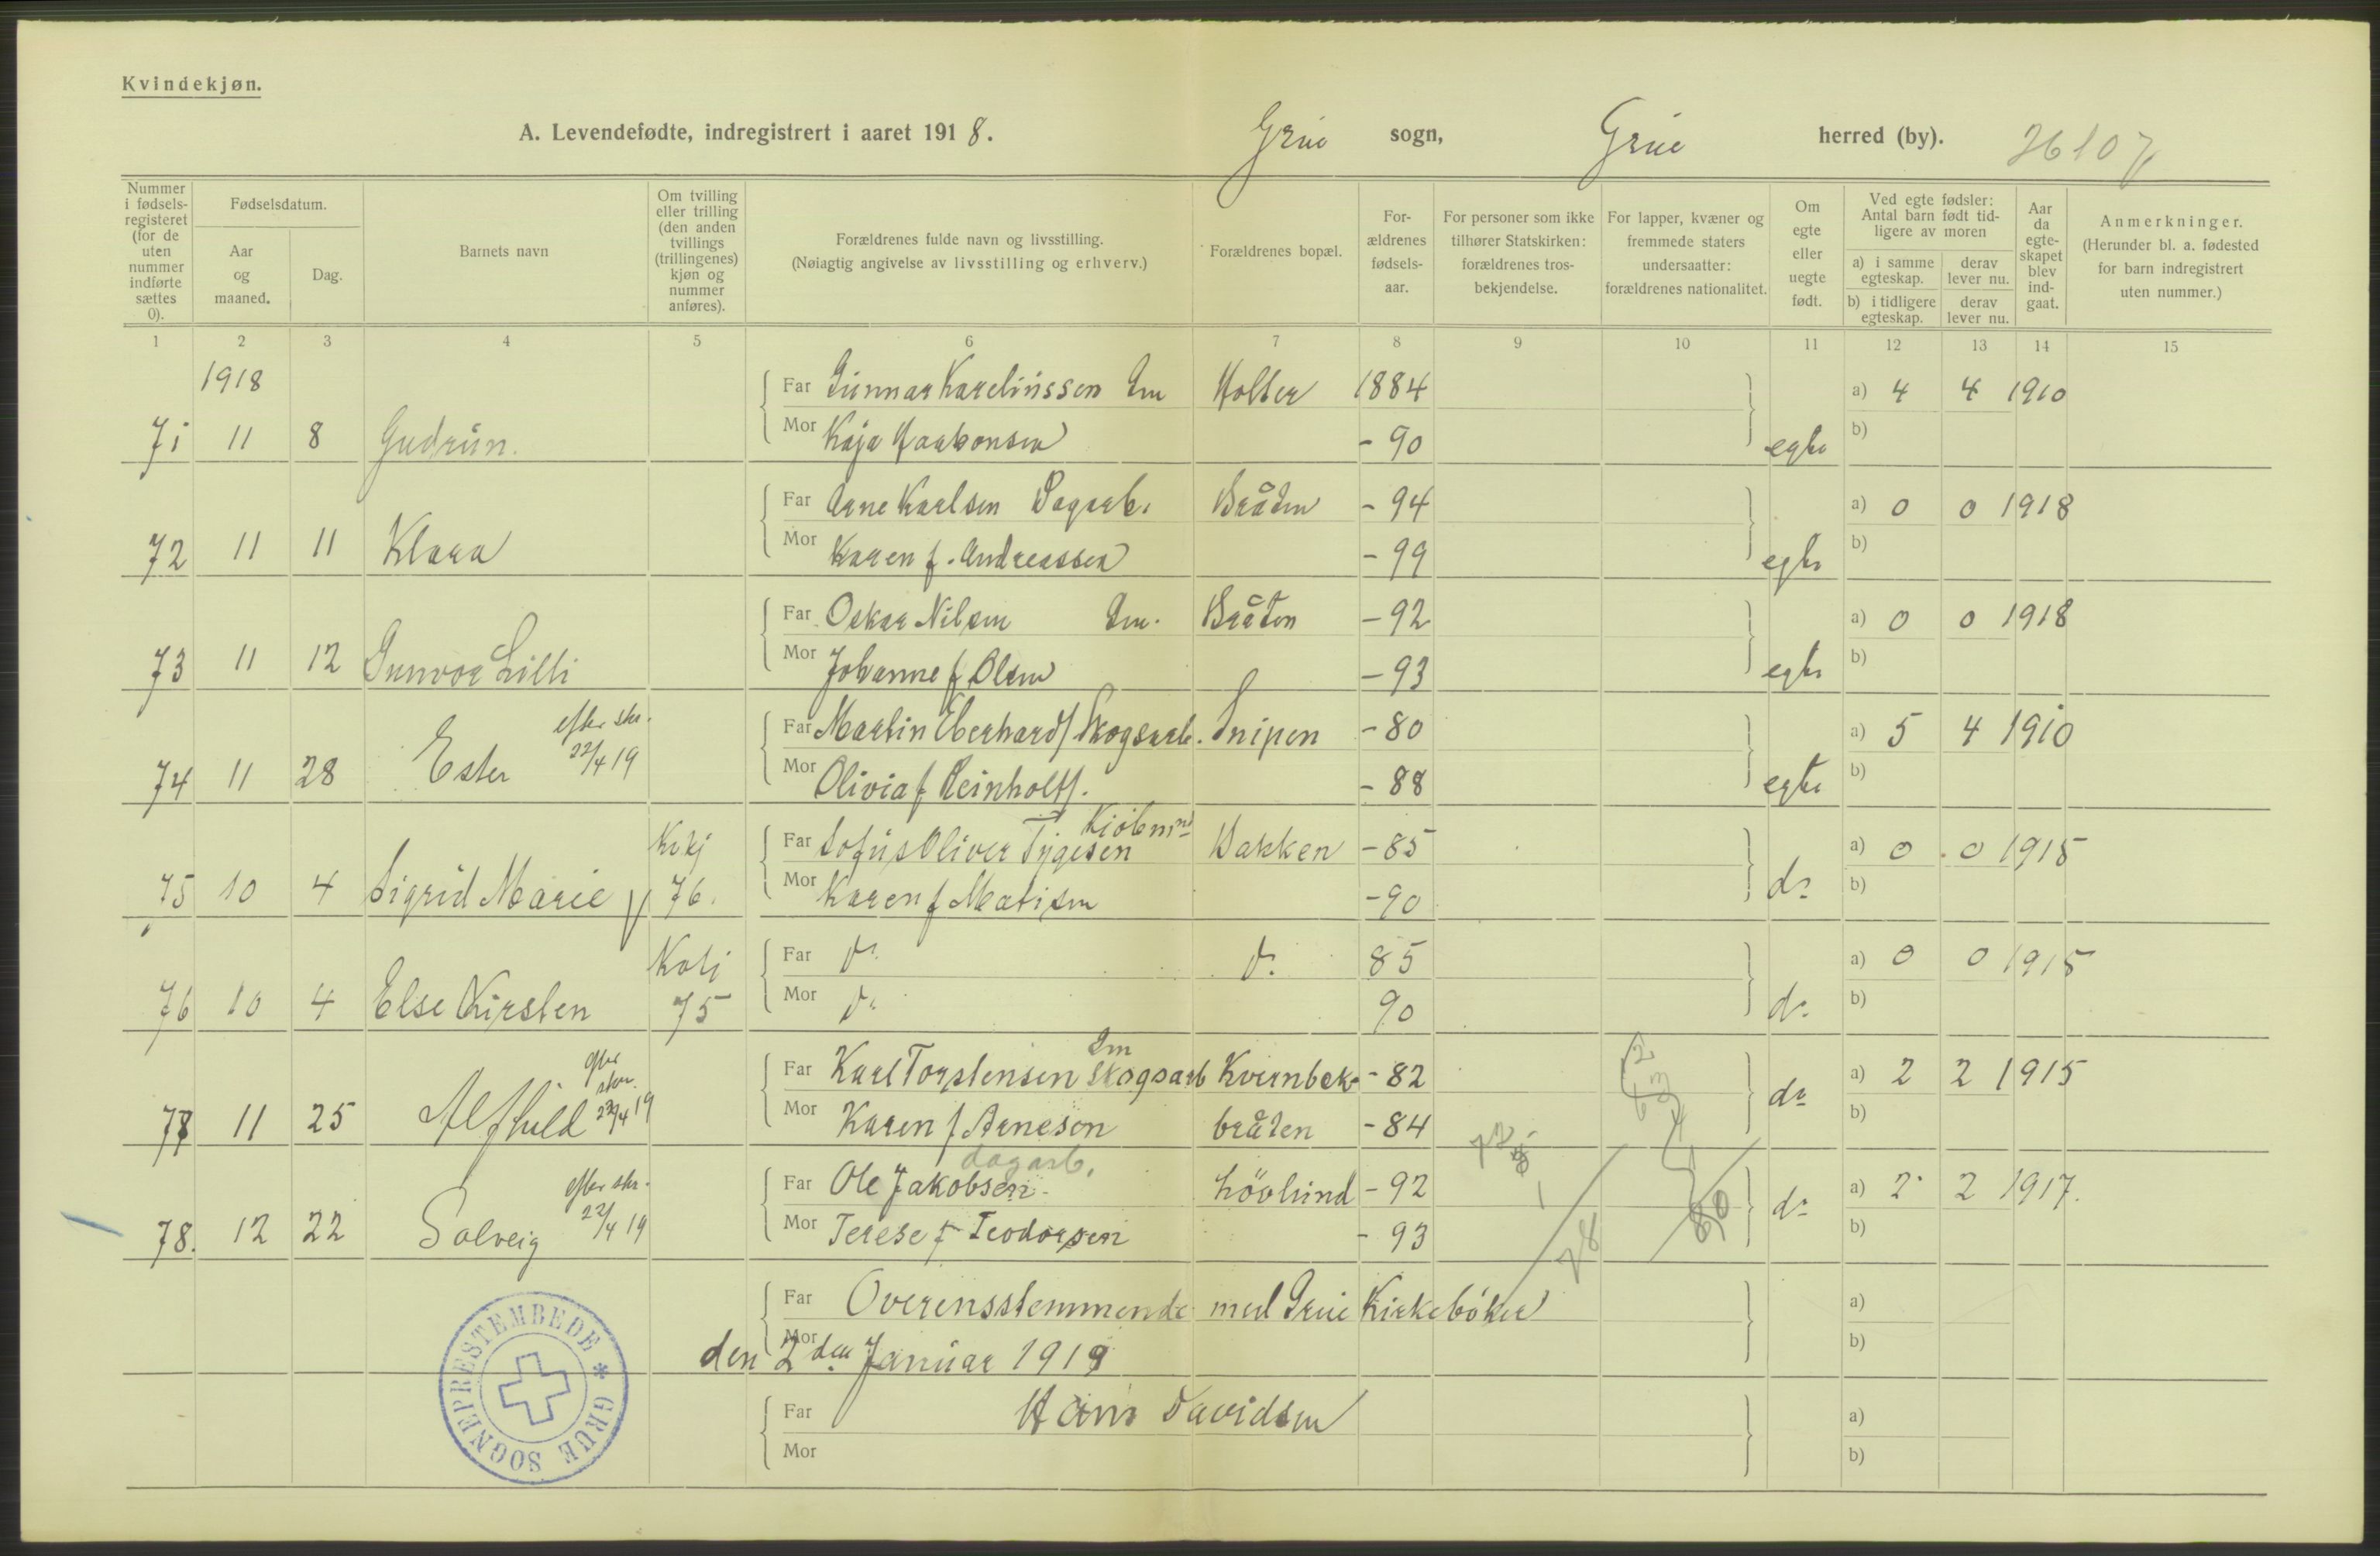 Kvindekjøn.
A. Levendefødte, indregistrert i aaret 1918. Grue sogn, Grue herred (by). 26107
Nummer i fødselsregisteret (for de uten nummer indførte sættes 0).
Fødselsdatum.
Aar og maaned.
Dag.
Barnets navn
Om tvilling eller trilling (den anden tvillings (trillingenes) kjøn og nummer anføres).
Forældrenes fulde navn og livsstilling.
(Nøiagtig angivelse av livsstilling og erhverv.)
Forældrenes bopæl.
Forældrenes fødselsaar.
For personer som ikke tilhører Statskirken: forældrenes trosbekjendelse.
For lapper, kvæner og fremmede staters undersaatter: forældrenes nationalitet.
Om egte eller uegte født.
Ved egte fødsler: Antal barn født tidligere av moren
a) i samme egteskap. derav lever nu.
b) i tidligere egteskap. derav lever nu.
Aar da egteskapet blev indgaat.
Anmerkninger.
(Herunder bl. a. fødested for barn indregistrert uten nummer.)
1 2 3 4 5 6 7 8 9 10 11 12 13 14 15
1918
Far Gunnar Kareliussen Gm Holter 1884 a) 4 4 1910
71 11 8 Gudrun. Mor Kaja Haakonsen - 90 egte b)
Far Arne Karlsen Dagarb. Bråten - 94 a) 0 0 1918
72 11 11 Klara Mor Karen f. Andreassen - 99 egte b)
Far Oskar Nilsen Gm. Bråten - 92 a) 0 0 1918
73 11 12 Gunvor Lilli Mor Johanne f Olsen - 93 egte b)
efter skr. 22/4 19
Far Martin Eberhards Skogsarb. Snipen - 80 a) 5 4 1910
74 11 28 Ester Mor Olivia f Reinholts. - 88 egte b)
Kvkj Far Sofus Oliver Tygesen Kjøbmnd Bakken - 85 a) 0 0 1915
75 10 4 Sigrid Marie 76. Mor Karen f Matisen - 90 do b)
Kvkj Far do do 85 a) 0 0 1915
76 10 4 Else Kirsten 75 Mor do 90 do b)
efter skr. 22/4 19
Far Karl Torstensen Gm Skogsarb Kvernbek- - 82 a) 2 2 1915
77 11 25 Alfhild Mor Karen f Arnesen bråten - 84 do b)
dagarb.
efter skr. 22/4 19
Far Ole Jakobsen Lövlund - 92 a) 2 2 1917.
78. 12 22 Solveig Mor Terese f Teodorsen - 93 do b)
78 80
Far Overensstemmende med Grue Kirkebøker a)
Mor den 2den Januar 1919 b)
Far Hans Davidsen a)
Mor b)
GRUE SOGNEPRESTEMBEDE *